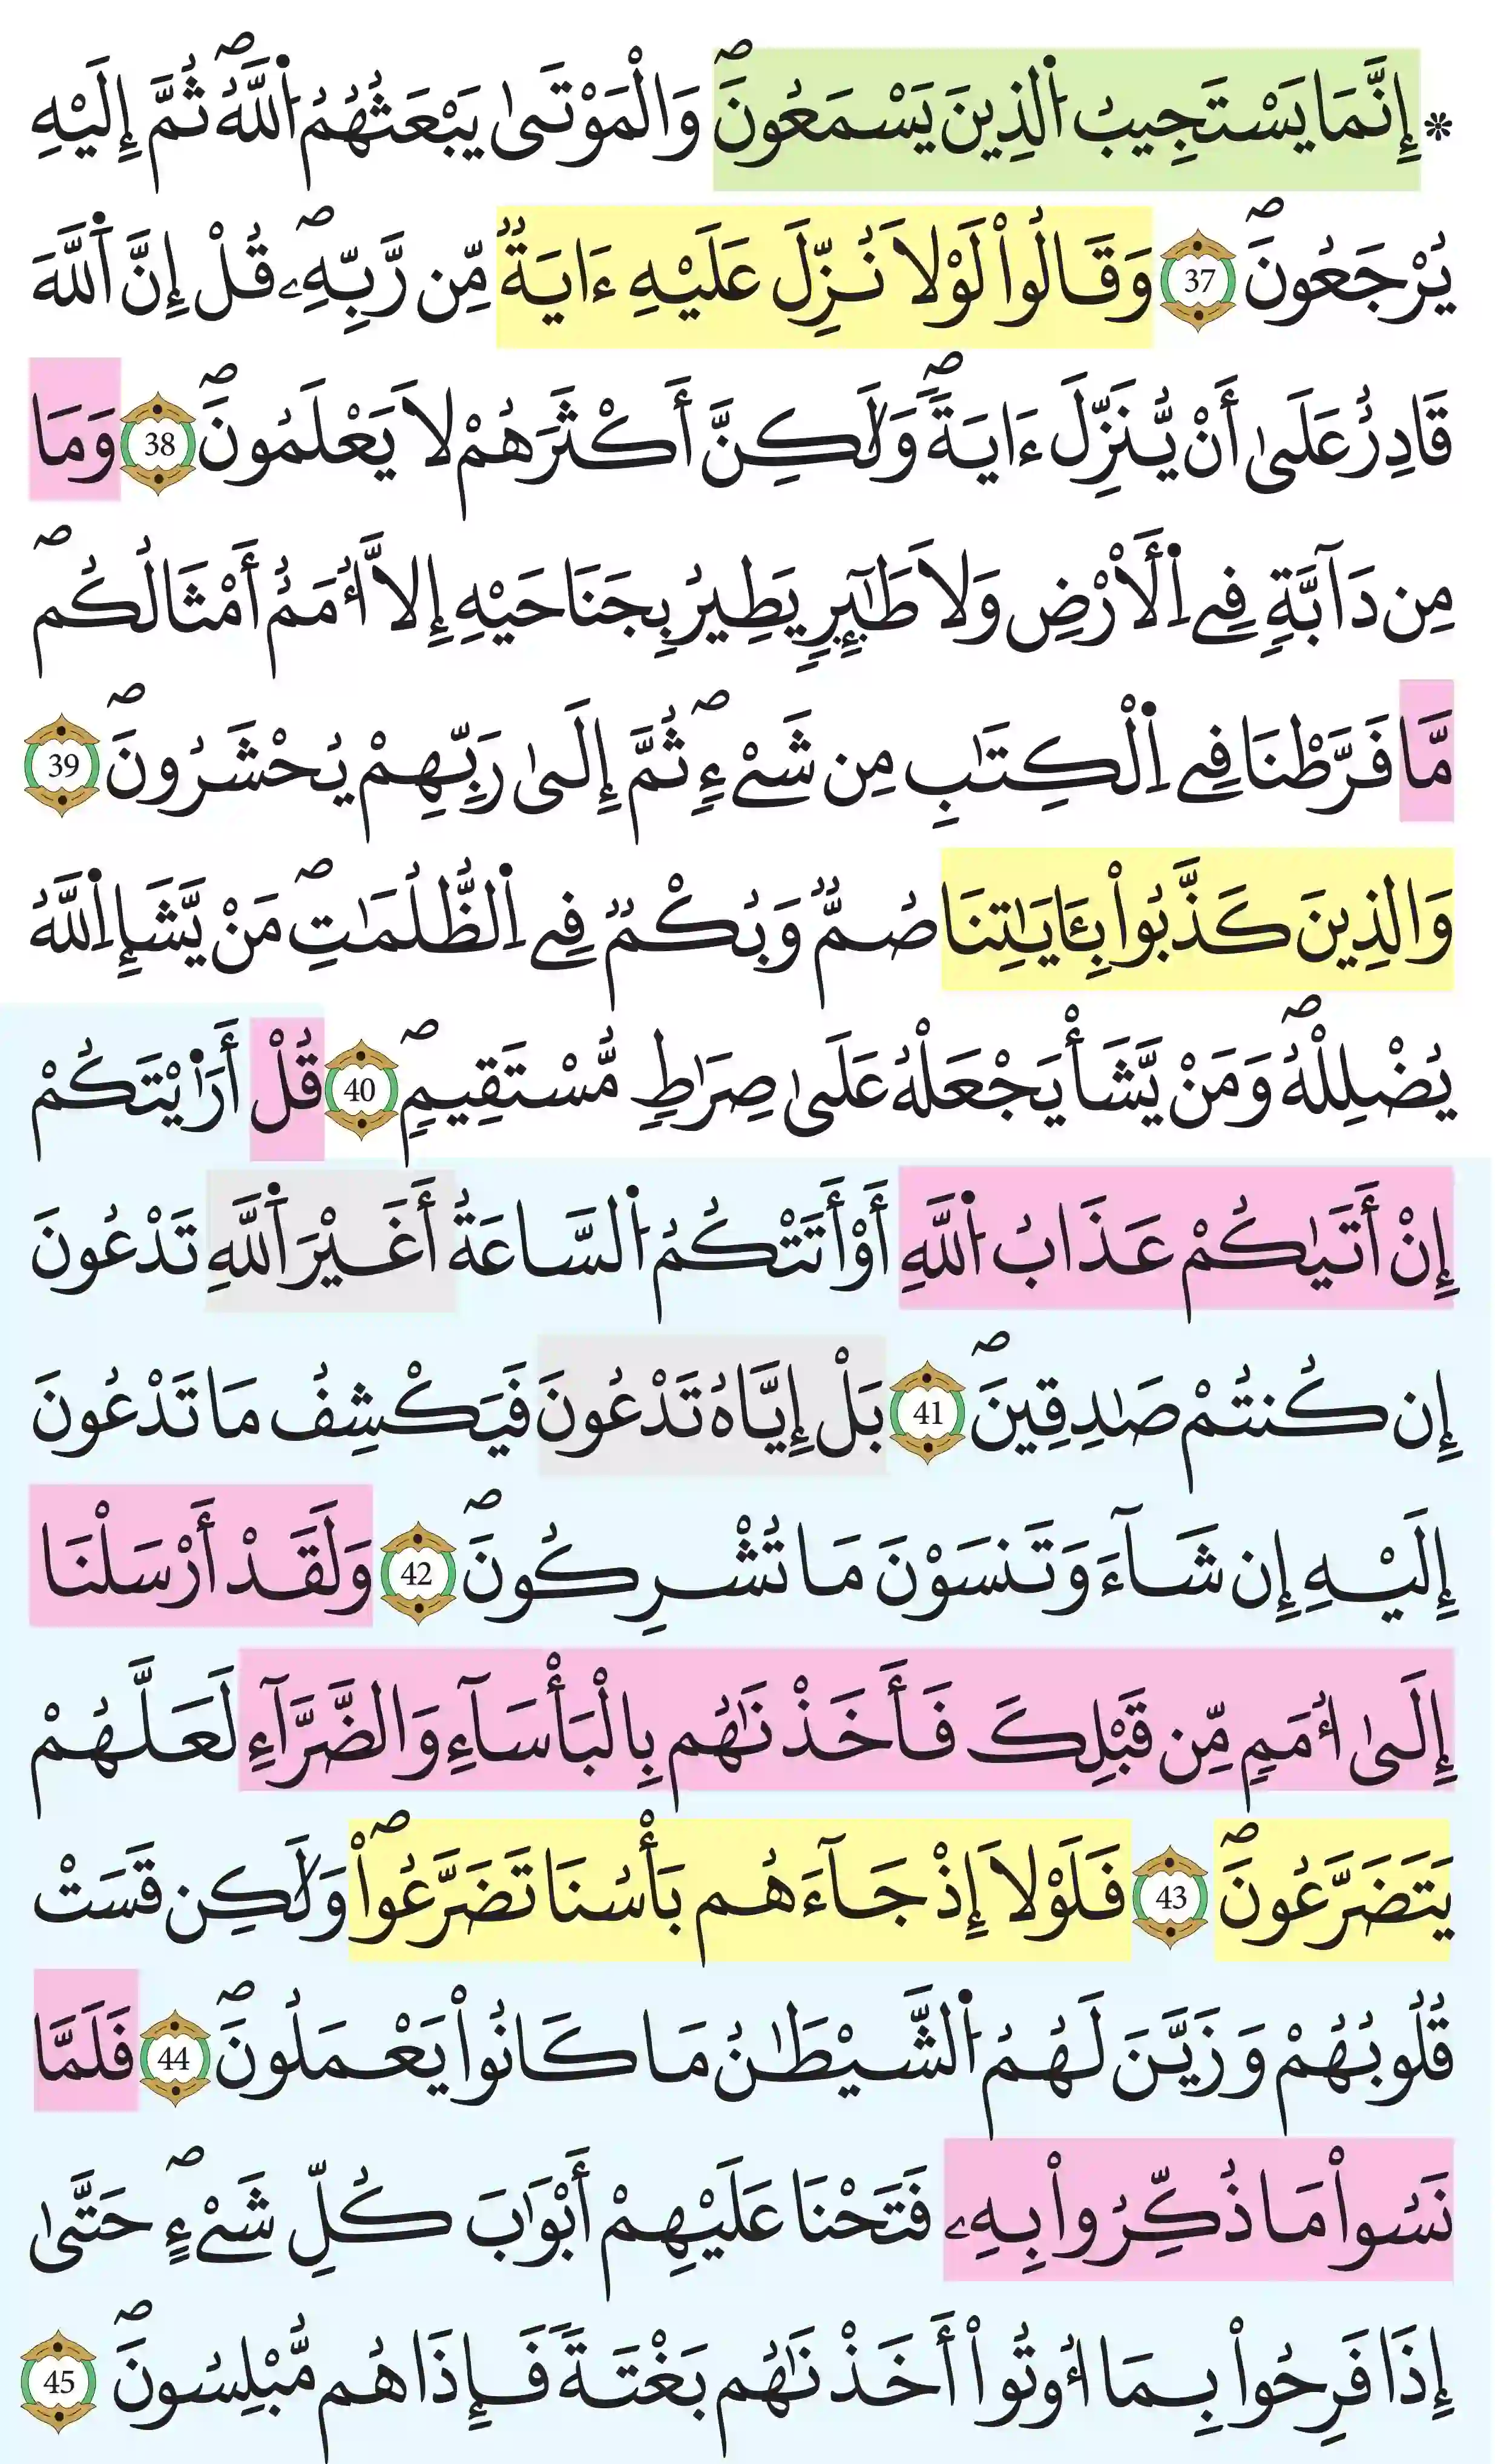 * إِنَّمَا يَسْتَجِيبُ اُ۬لذِينَ يَسْمَعُونَۖ وَالْمَوْتَىٰ يَبْعَثُهُمُ اُ۬للَّهُۖ ثُمَّ إِلَيْهِ
يُرْجَعُونَۖ 37 وَقَالُواْ لَوْلَا نُزِّلَ عَلَيْهِ ءَايَةٞ مِّن رَّبِّهِۦۖ قُلْ إِنَّ اَ۬للَّهَ
قَادِرٌ عَلَىٰ أَنْ يُّنَزِّلَ ءَايَةٗۖ وَلَٰكِنَّ أَكْثَرَهُمْ لَا يَعْلَمُونَۖ 38 وَمَا
مِن دَآبَّةٖ فِے اِ۬لَارْضِ وَلَا طَٰٓئِرٖ يَطِيرُ بِجَنَاحَيْهِ إِلَّا أُمَمٌ أَمْثَالُكُمۖ
مَّا فَرَّطْنَا فِے اِ۬لْكِتَٰبِ مِن شَےْءٖۖ ثُمَّ إِلَىٰ رَبِّهِمْ يُحْشَرُونَۖ 39
وَالذِينَ كَذَّبُواْ بِـَٔايَٰتِنَا صُمّٞ وَبُكْمٞ فِے اِ۬لظُّلُمَٰتِۖ مَنْ يَّشَإِ اِ۬للَّهُ
يُضْلِلْهُۖ وَمَنْ يَّشَأْ يَجْعَلْهُ عَلَىٰ صِرَٰطٖ مُّسْتَقِيمٖۖ 40 قُلْ أَرَٰيْتَكُمْ
إِنْ أَتَيٰكُمْ عَذَابُ اُ۬للَّهِ أَوْ أَتَتْكُمُ اُ۬لسَّاعَةُ أَغَيْرَ اَ۬للَّهِ تَدْعُونَ
إِن كُنتُمْ صَٰدِقِينَۖ 41 بَلْ إِيَّاهُ تَدْعُونَ فَيَكْشِفُ مَا تَدْعُونَ
إِلَيْهِ إِن شَآءَ وَتَنسَوْنَ مَا تُشْرِكُونَۖ 42 وَلَقَدْ أَرْسَلْنَا
إِلَىٰ أُمَمٖ مِّن قَبْلِكَ فَأَخَذْنَٰهُم بِالْبَأْسَآءِ وَالضَّرَّآءِ لَعَلَّهُمْ
يَتَضَرَّعُونَۖ 43 فَلَوْلَا إِذْ جَآءَهُم بَأْسُنَا تَضَرَّعُواْۖ وَلَٰكِن قَسَتْ
قُلُوبُهُمْ وَزَيَّنَ لَهُمُ اُ۬لشَّيْطَٰنُ مَا كَانُواْ يَعْمَلُونَۖ 44 فَلَمَّا
نَسُواْ مَا ذُكِّرُواْ بِهِۦ فَتَحْنَا عَلَيْهِمْ أَبْوَٰبَ كُلِّ شَےْءٍۖ حَتَّىٰ
إِذَا فَرِحُواْ بِمَا أُوتُواْ أَخَذْنَٰهُم بَغْتَةٗ فَإِذَا هُم مُّبْلِسُونَۖ 45